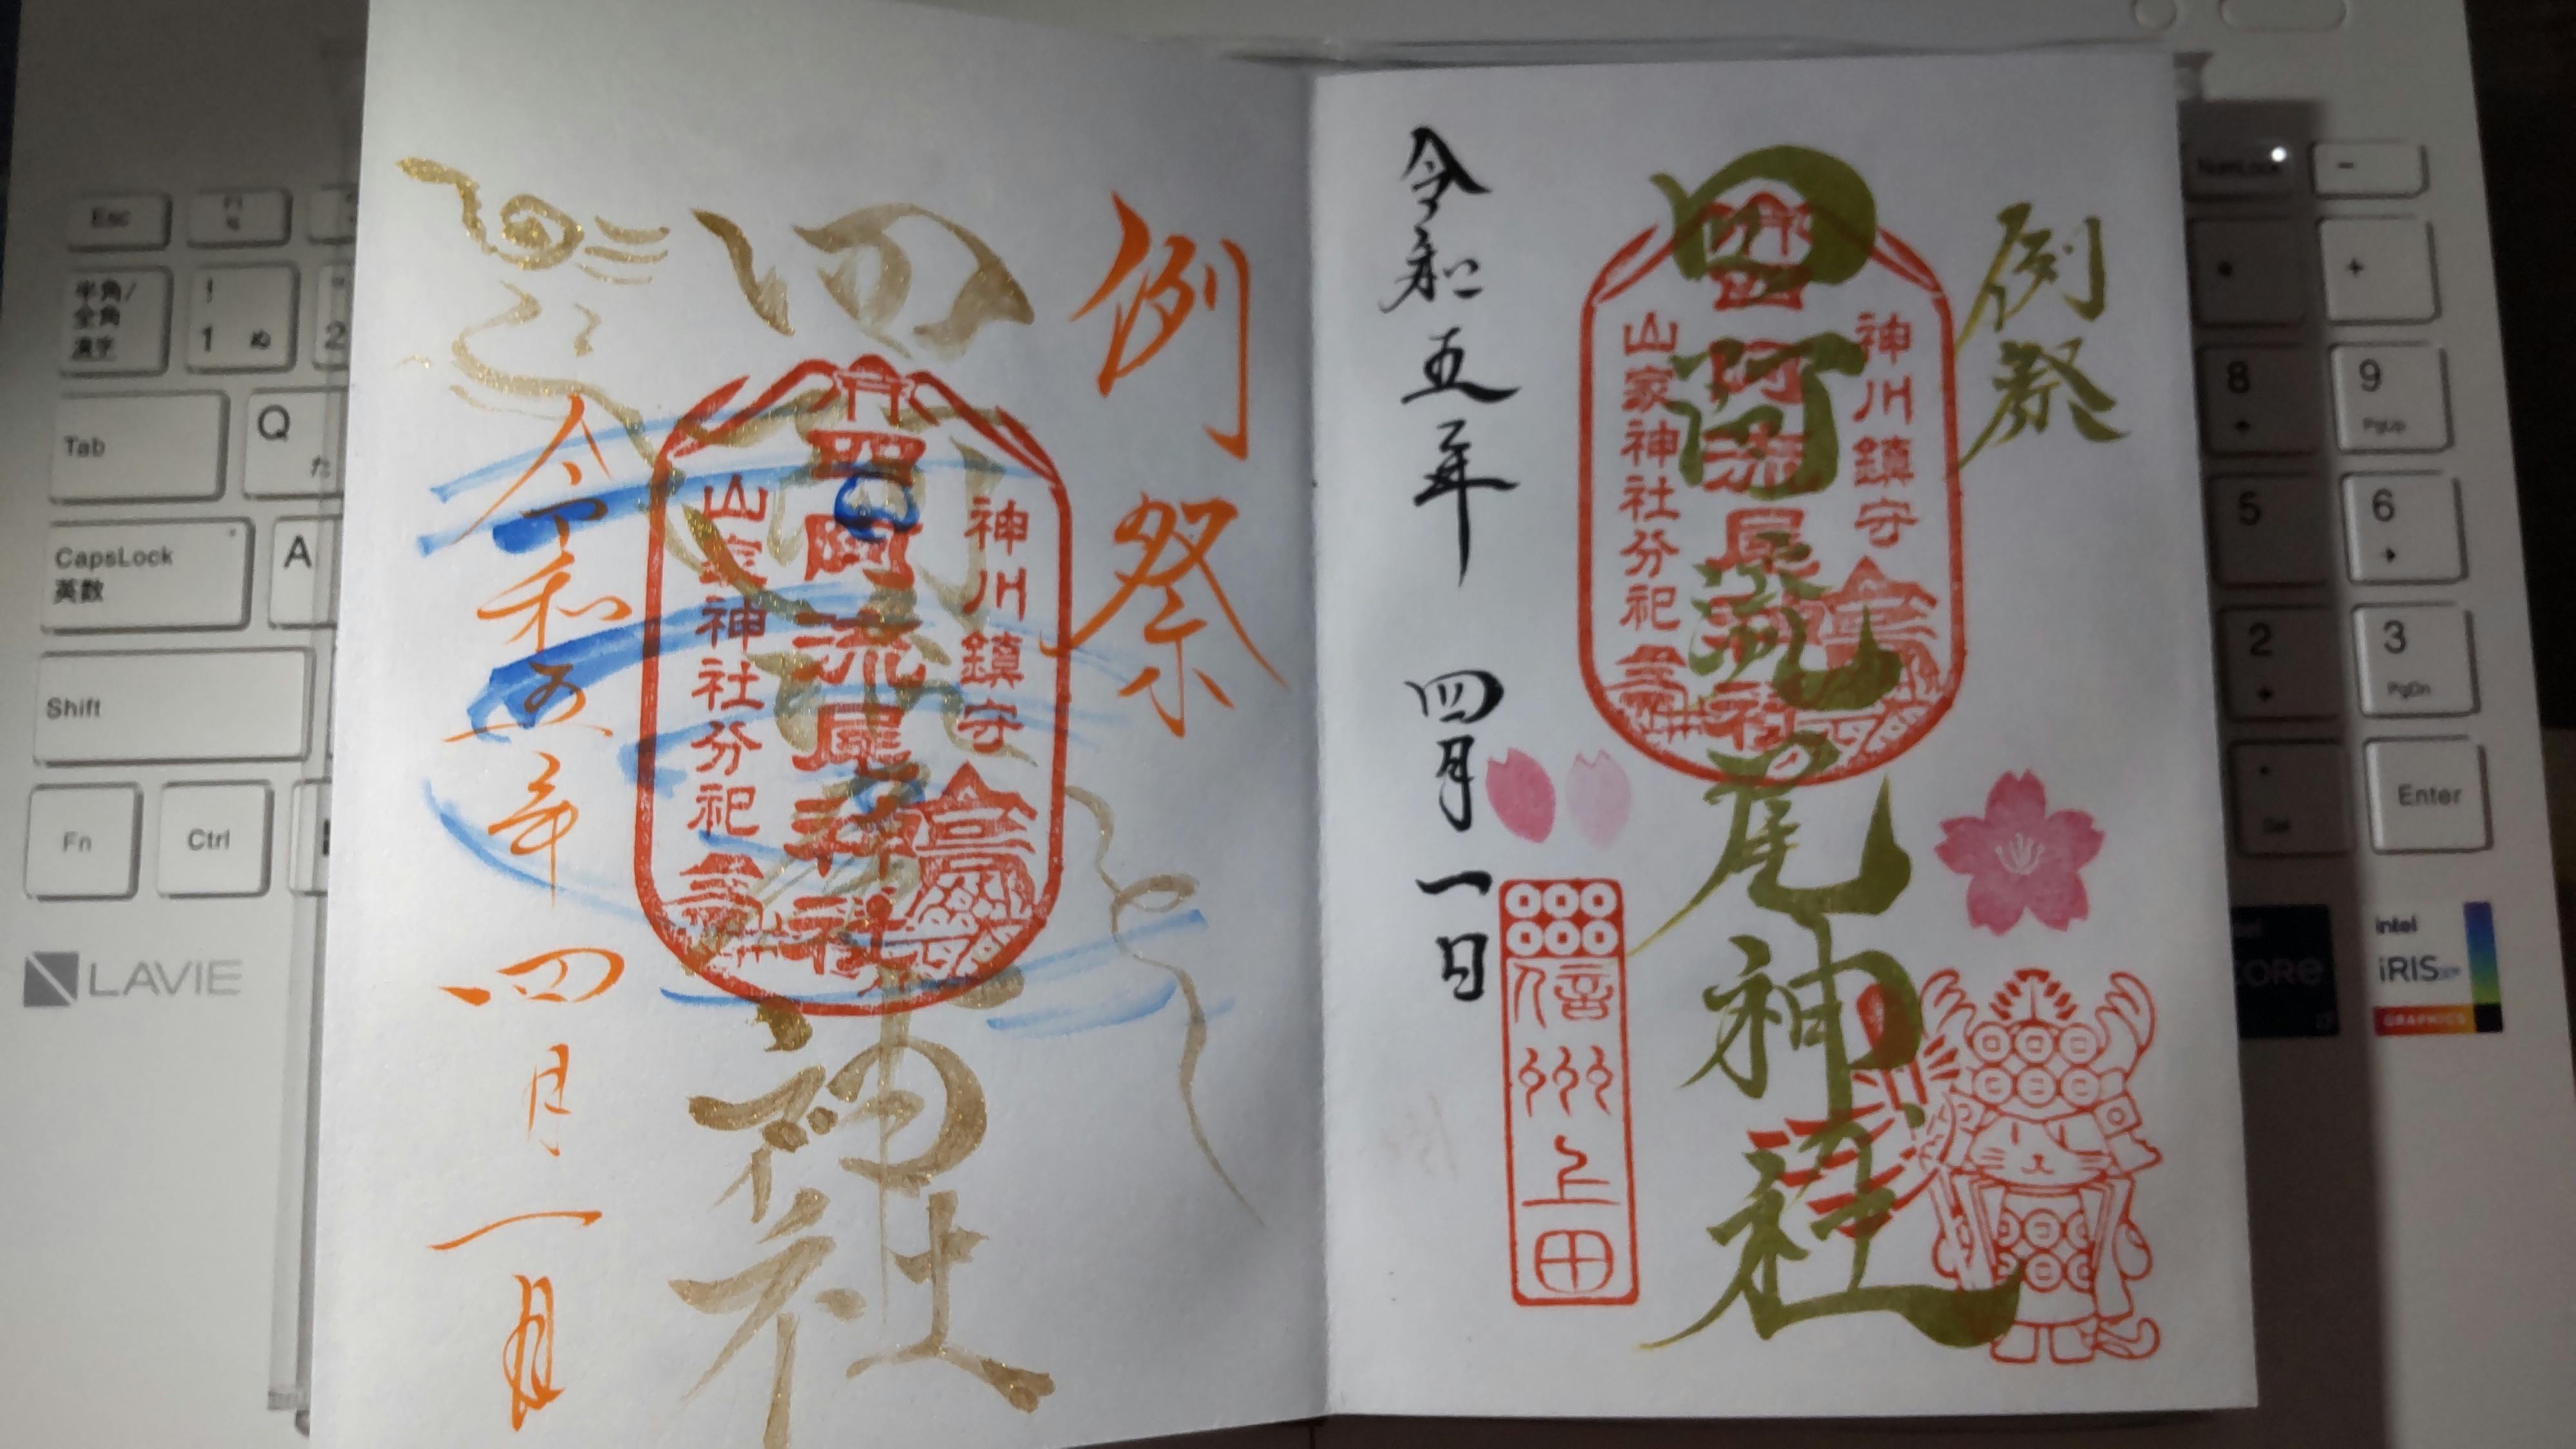 例祭
四阿流尾神社
神川鎮守
四阿流尾神社
山家神社分祀
令和五年 四月一日
信州上田
例祭
四阿流尾神社
神川鎮守
四阿流尾神社
山家神社分祀
令和五年 四月一日
Esc
F1
半角/
全角
漢字
!
1 ぬ
"
2
Tab
Q
た
CapsLock
英数
A
Shift
Fn
Ctrl
LAVIE
NumLock
-
*
+
8
9
PgUp
5
6
2
3
PgDn
.
Del
Enter
intel
CORE
intel
iRIS
GRAPHICS